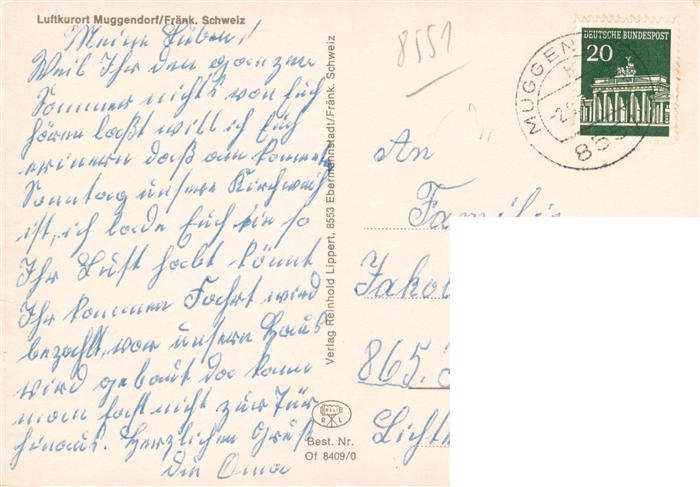 Luftkurort Muggendorf/Fränk. Schweiz
Meine Lieben!
Weil Ihr den ganzen
Sommer nichts von Euch
hören laßt will ich Euch
erinern daß am kommen
Sonntag unsere Kirchweih
ist, ich lade Euch ein so
Ihr Lust habt könnt
Ihr kommen Fahrt wird
bezahlt, vor unserm Haus
wird gebaut da kann
man fast nicht zur Tür
hinaus. Herzlichen Gruß
die Oma
Verlag Reinhold Lippert, 8553 Ebermannstadt/Fränk. Schweiz
RELI
R L
Best. Nr.
Of 8409/0
8551
DEUTSCHE BUNDESPOST
20
MUGGEN
855
An
Familie
Jako
865
Licht